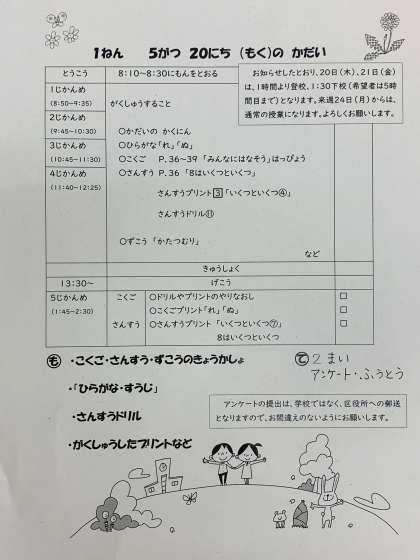 1ねん　5がつ　20にち（もく）の　かだい
とうこう　8:10～8:30にもんをとおる
お知らせしたとおり、20日（木）、21日（金）
は、1時間より登校、1:30下校（希望者は5時
間目まで）となります。来週24日（月）からは、
通常の授業になります。よろしくお願いします。
1じかんめ
(8:50～9:35)
がくしゅうすること
2じかんめ
(9:45～10:30)
○かだいの　かくにん
3じかんめ
(10:45～11:30)
○ひらがな「れ」「ぬ」
○こくご　P.36～39　「みんなにはなそう」はっぴょう
4じかんめ
(11:40～12:25)
○さんすう　P.36　「8はいくつといくつ」
さんすうプリント3「いくつといくつ④」
さんすうドリル⑪
○ずこう「かたつむり」
など
きゅうしょく
13:30～　げこう
5じかんめ
(1:45～2:30)
こくご　○ドリルやプリントのやりなおし　□
○こくごプリント「れ」「ぬ」　□
さんすう　○さんすうプリント　「いくつといくつ⑦」　□
8はいくつといくつ
も　・こくご・さんすう・ずこうのきょうかしょ
・「ひらがな・すうじ」
・さんすうドリル
・がくしゅうしたプリントなど
て　2まい
アンケート・ふうとう
アンケートの提出は、学校ではなく、区役所への郵送
となりますので、お間違えのないようにお願いします。